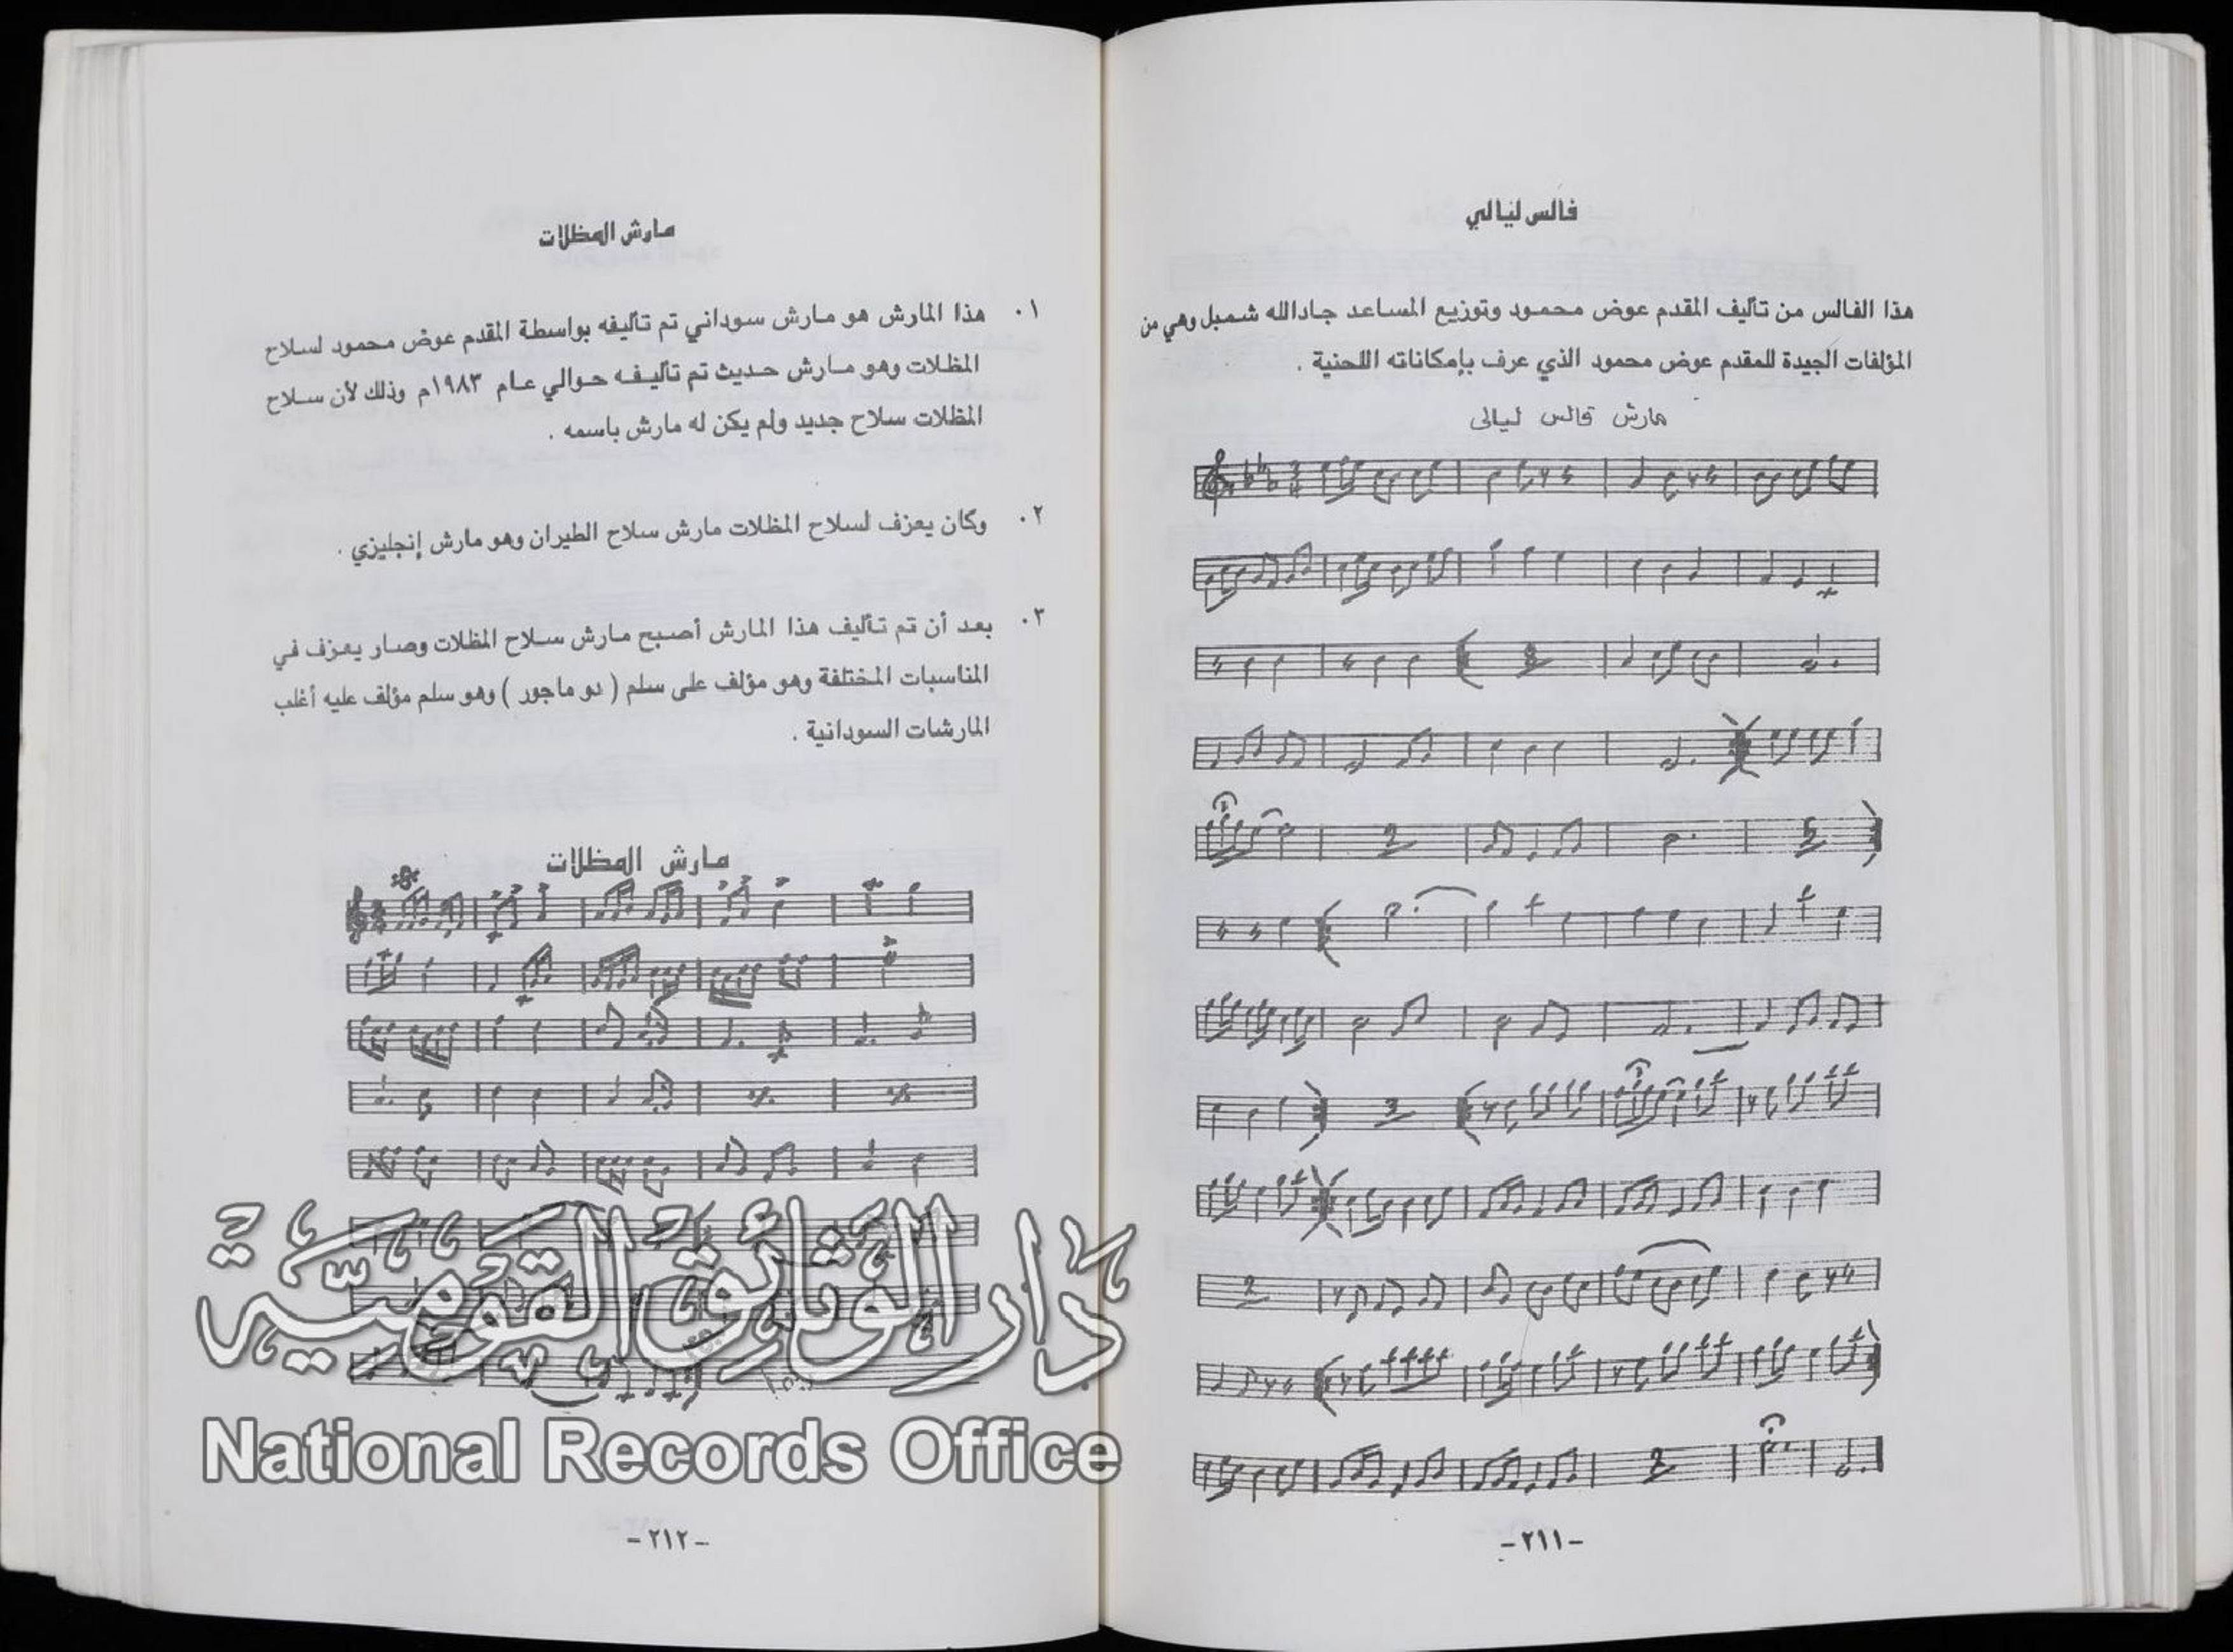 فالس ليالي
هذا الفالس من تأليف المقدم عوض محمود وتوزيع المساعد جادالله شمبل وهي من
المؤلفات الجيدة للمقدم عوض محمود الذي عرف بإمكاناته اللحنية .
مارش فالس ليالى
-٢١١-
مارش المظلات
١. هذا المارش هو مارش سوداني تم تأليفه بواسطة المقدم عوض محمود لسلاح
المظلات وهو مارش حديث تم تأليفه حوالي عام ١٩٨٣م وذلك لأن سلاح
المظلات سلاح جديد ولم يكن له مارش باسمه .
٢. وكان يعزف لسلاح المظلات مارش سلاح الطيران وهو مارش إنجليزي .
٣. بعد أن تم تأليف هذا المارش أصبح مارش سلاح المظلات وصار يعزف في
المناسبات المختلفة وهو مؤلف على سلم ( دو ماجور ) وهو سلم مؤلف عليه أغلب
المارشات السودانية .
مارش المظلات
دَار الوَثائِق القَوميَّة
National Records Office
-٢١٢-